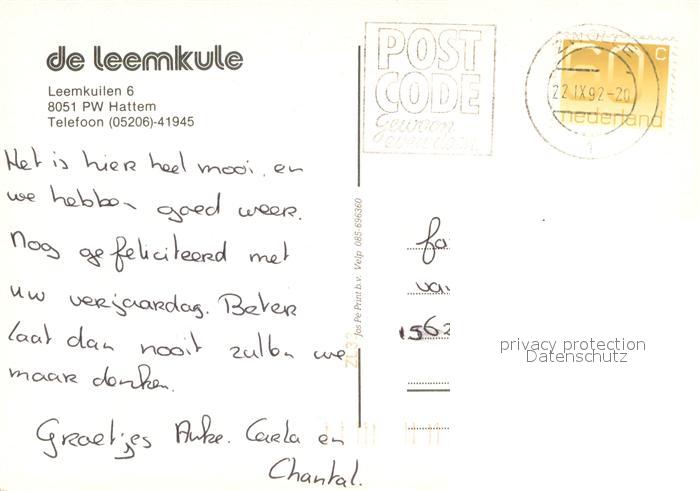 de leemkule
Leemkuilen 6
8051 PW Hattem
Telefoon (05206)-41945
Het is hier heel mooi, en
we hebben goed weer.
Nog gefeliciteerd met
uw verjaardag. Beter
laat dan nooit zullen we
maar denken.
Groetjes Anke. Carla en
Chantal.
Jos Pé Print b.v. Velp 085-696360
POST
CODE
gewoon
even doen
ZWOLLE
22 IX 92-20
1
60 c
nederland
fa
va
1562
privacy protection
Datenschutz